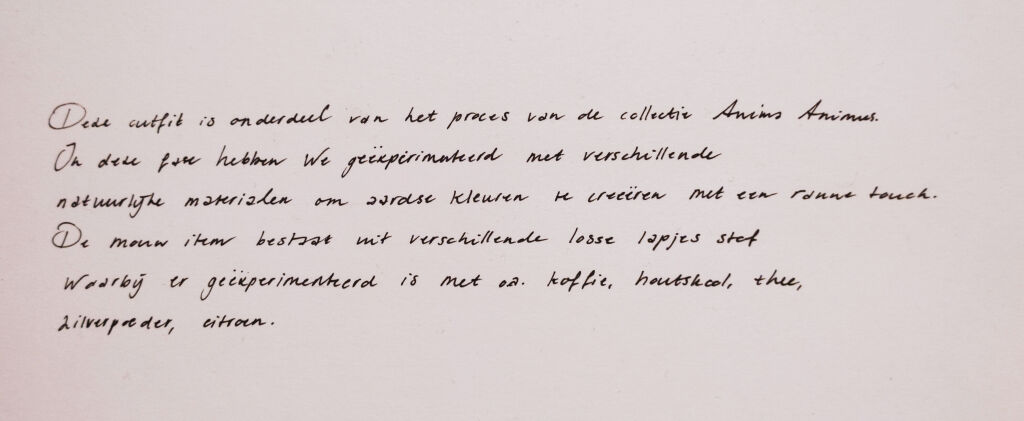 Deze outfit is onderdeel van het proces van de collectie Anima Animus.
In deze fase hebben we geëxperimenteerd met verschillende
natuurlijke materialen om aardse kleuren te creëren met een rauwe touch.
De mouw item bestaat uit verschillende losse lapjes stof
Waarbij er geëxperimenteerd is met oa. koffie, houtskool, thee,
zilverpoeder, citroen.